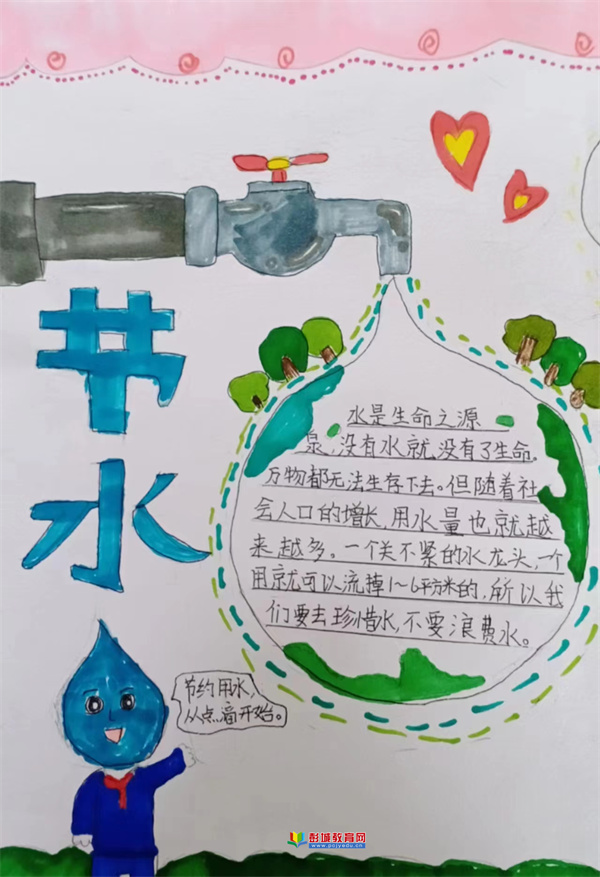 节水
水是生命之源
泉,没有水就没有了生命。
万物都无法生存下去。但随着社
会人口的增长,用水量也就越
来越多。一个关不紧的水龙头,一个
用就可以流掉1~6平方米的,所以我
们要去珍惜水,不要浪费水。
节约用水,
从点滴开始。
彭城教育网
www.pcjyedu.cn